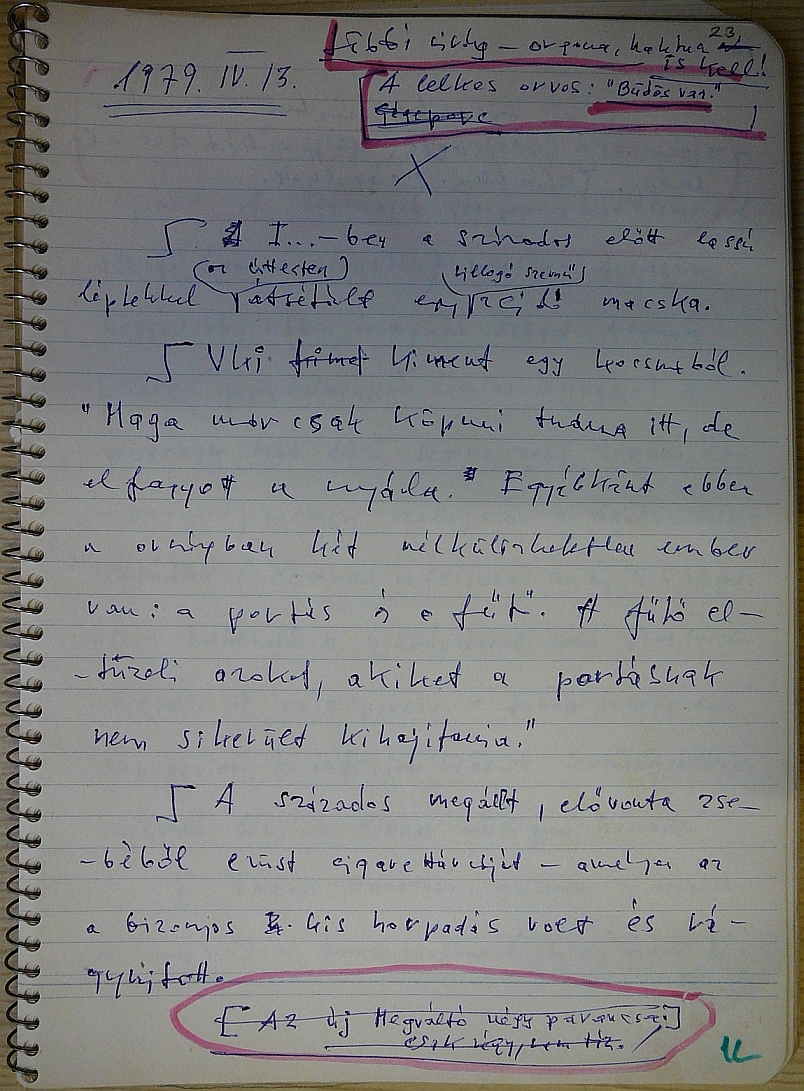 23.
Többi üveg – orgona, kaktusz
is kell!
1979. IV. 13.
A lelkes orvos: "Büdös van."
I...-ben a százados előtt lassú
(az úttesten) villogó szemű
léptekkel átsétált egy macska.
Vki kiment egy kocsmából.
"Maga már csak köpni tudna itt, de
elfagyott a nyála." Egyébként ebben
a országban két nélkülözhetetlen ember
van: a portás és a fűtő. A fűtő el–
–tüzeli azokat, akiket a portásnak
nem sikerült kihajítania."
A százados megállt, elővonta zse–
–béből ezüst cigarettatárcáját – amelyen az
a bizonyos kis horpadás volt és rá–
gyújtott.
[Az új Megváltó négy parancsa:]
csak négy, nem tíz.